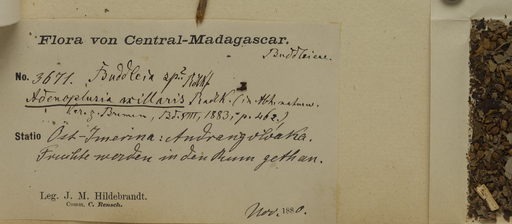 Flora von Central-Madagascar.
Buddleieae.
No. 3671. Buddleia sp? Radlkf
Adenoplusia axillaris Radlk. (in Abh. naturw.
Ver. z. Bremen, Bd. VIII, 1883, p. 462.)
Statio Ost-Imerina: Andrangoloaka.
Früchte werden in den Rum gethan.
Leg. J. M. Hildebrandt.
Comm. C. Rensch.
Nov. 1880.